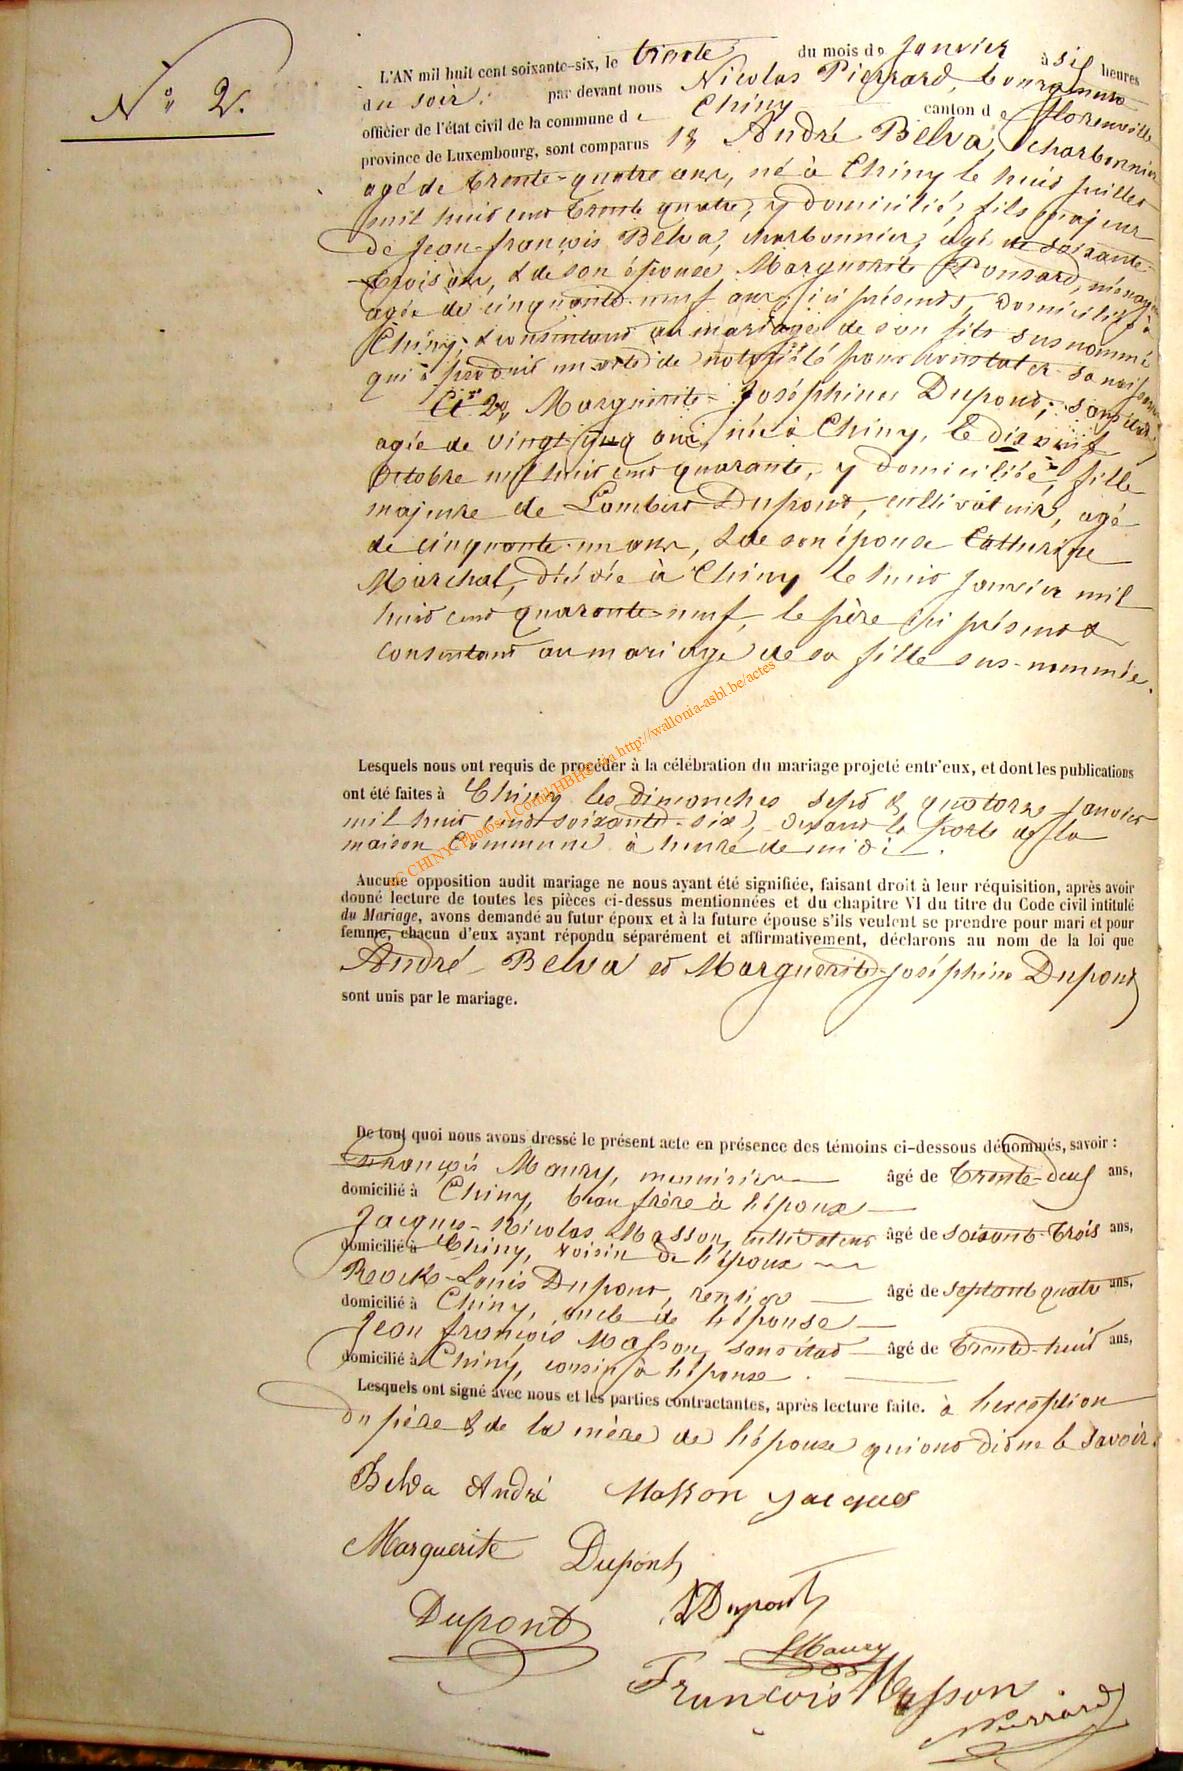 N° 2.
L'AN mil huit cent soixante-six, le trente du mois de Janvier à six heures
du soir, par devant nous Nicolas Pierrard, bourgmestre
officier de l'état civil de la commune de Chiny canton de Florenville
province de Luxembourg, sont comparus 1° André Belva, charbonnier
agé de trente-quatre ans, né à Chiny le huit juillet
mil huit cent trente quatre, y domicilié, fils majeur
de Jean-françois Belva, charbonnier, agé de soixante-
trois ans, & de son épouse Marguerite Ponsard, ménagère
agée de cinquante-neuf ans, ici présents, domiciliés à
Chiny & consentant au mariage de son fils susnommé
qui a produit un acte de notoriété pour constater sa naissance
Et 2° Marguerite-Joséphine Dupont, sans état,
agée de vingt-cinq ans, née à Chiny, le dix neuf
Octobre mil huit cent quarante, y domiciliée, fille
majeure de Lambert Dupont, cultivateur, agé
de cinquante-un ans, & de son épouse Catherine
Marchal, décédée à Chiny le huit Janvier mil
huit cent quarante-neuf, le père ici présent &
consentant au mariage de sa fille sus-nommée.
Lesquels nous ont requis de procéder à la célébration du mariage projeté entr'eux, et dont les publications
ont été faites à Chiny les dimanches sept & quatorze janvier
mil huit cent soixante-six, devant la porte de la
maison Commune à heure de midi.
Aucune opposition audit mariage ne nous ayant été signifiée, faisant droit à leur réquisition, après avoir
donné lecture de toutes les pièces ci-dessus mentionnées et du chapitre VI du titre du Code civil intitulé
du Mariage, avons demandé au futur époux et à la future épouse s'ils veulent se prendre pour mari et pour
femme, chacun d'eux ayant répondu séparément et affirmativement, déclarons au nom de la loi que
André Belva et Marguerite-Joséphine Dupont
sont unis par le mariage.
De tout quoi nous avons dressé le présent acte en présence des témoins ci-dessous dénommés, savoir :
François Maury, menuisier âgé de trente-deux ans,
domicilié à Chiny, beau frère à l'époux
Jacques-Nicolas Masson, cultivateur âgé de soixante-trois ans,
domicilié à Chiny, voisin de l'époux
Rock-Louis Dupont, rentier âgé de septante quatre ans,
domicilié à Chiny, oncle de l'épouse
Jean françois Masson, sans état âgé de trente-huit ans,
domicilié à Chiny, cousin à l'épouse.
Lesquels ont signé avec nous et les parties contractantes, après lecture faite. à l'exception
du père & de la mère de l'époux qui ont dit ne le savoir.
Belva André Masson Jacques
Marguerite Dupont
Dupont Dupont
Maury
François Masson
Pierrard
EC CHINY - Photos J.Cornil/HBHS via http://wallonia-asbl.be/actes